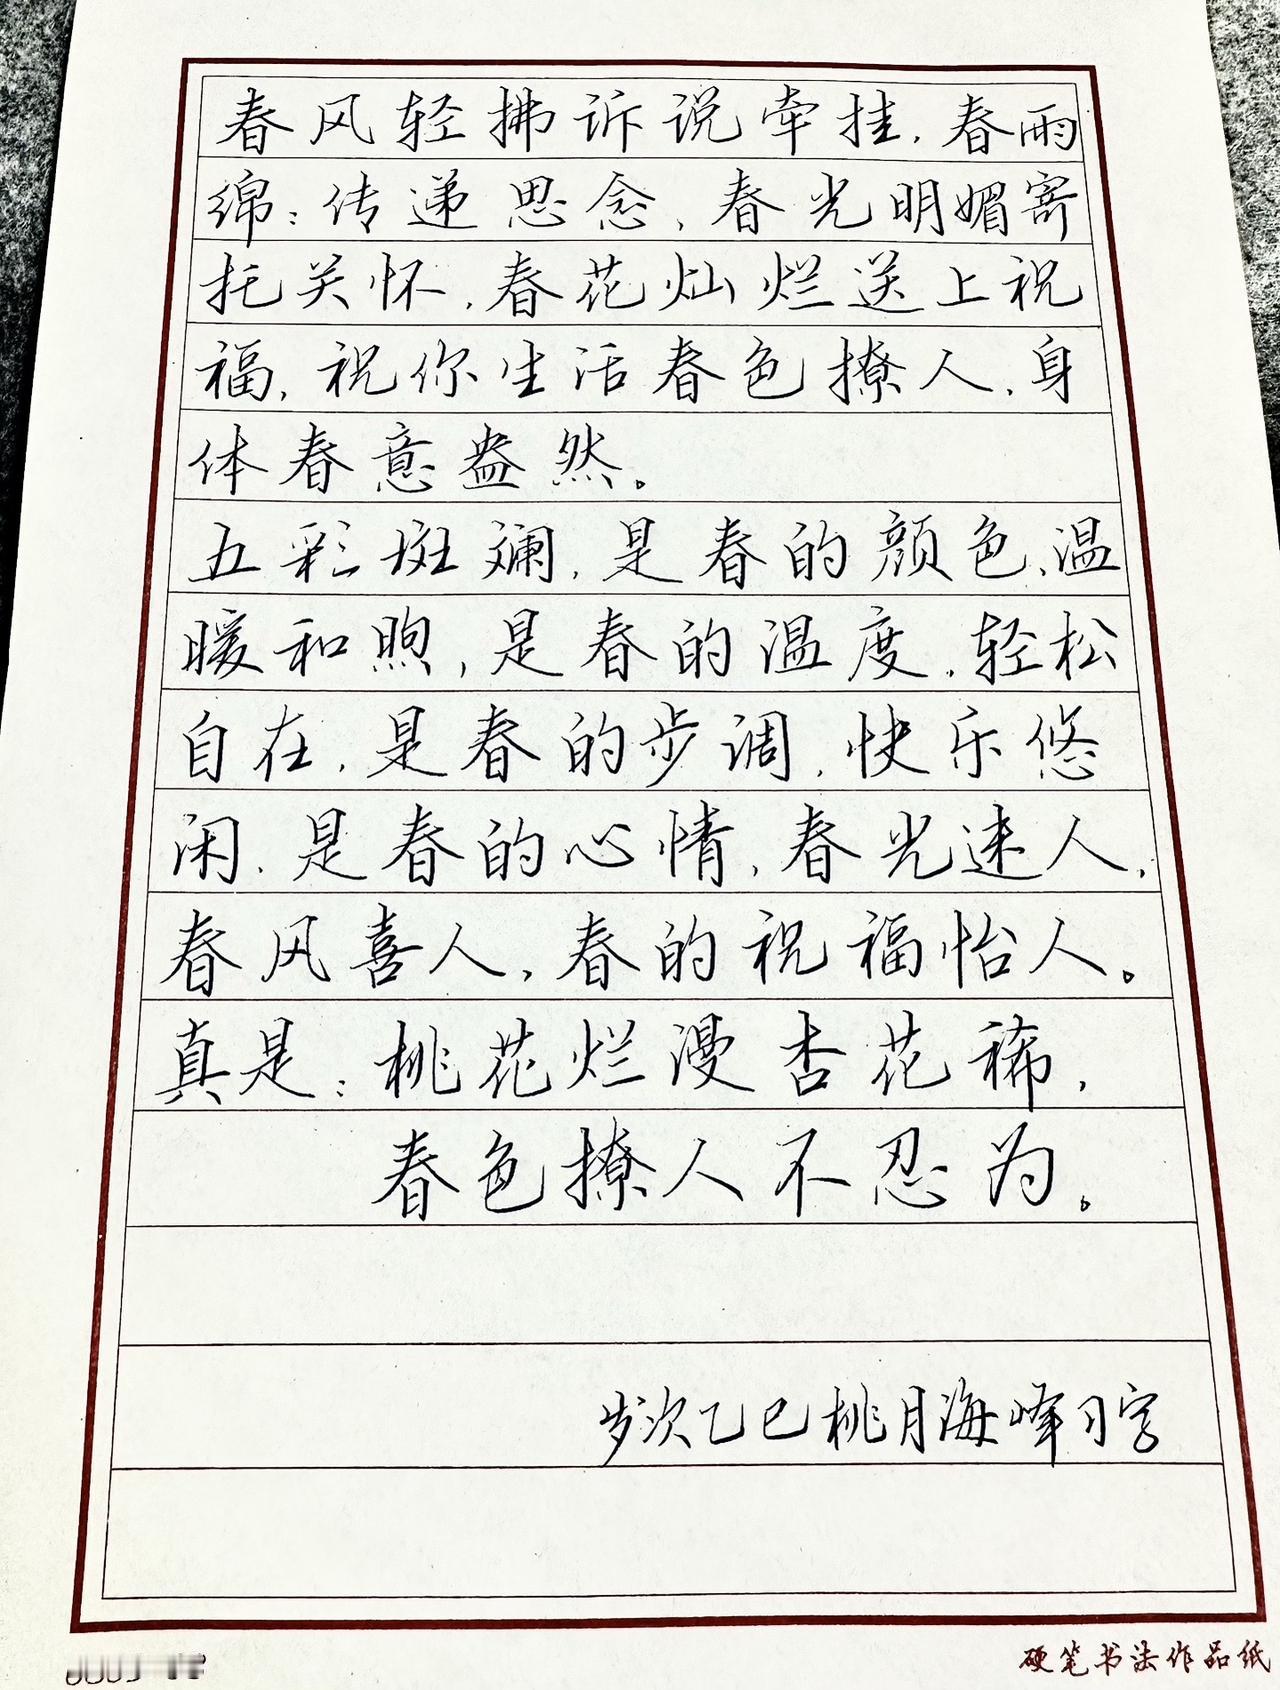 春风轻拂诉说牵挂，春雨
绵：传递思念，春光明媚寄
托关怀，春花灿烂送上祝
福，祝你生活春色撩人，身
体春意盎然。
五彩斑斓，是春的颜色，温
暖和煦，是春的温度，轻松
自在，是春的步调，快乐悠
闲，是春的心情，春光迷人，
春风喜人，春的祝福怡人。
真是：桃花烂漫杏花稀，
春色撩人不忍为。
岁次乙巳桃月海峰习字
硬笔书法作品纸